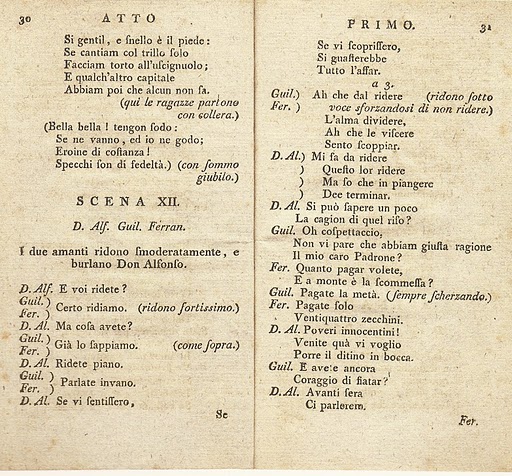 30 ATTO
Si gentil, e ſnello è il piede:
Se cantiam col trillo ſolo
Facciam torto all'uſcignuolo;
E qualch'altro capitale
Abbiam poi che alcun non ſa.
(qui le ragazze partono
con collera.)
(Bella bella! tengon ſodo:
Se ne vanno, ed io ne godo;
Eroine di coſtanza!
Specchi ſon di fedeltà.) (con ſommo
giubilo.)
SCENA XII.
D. Alf. Guil. Ferran.
I due amanti ridono ſmoderatamente, e
burlano Don Alfonſo.
D. Alf. E voi ridete?
Guil.)
Certo ridiamo. (ridono fortiſſimo.)
Fer. )
D. Al. Ma coſa avete?
Guil.)
Già lo ſappiamo. (come ſopra.)
Fer. )
D. Al. Ridete piano.
Guil. )
Parlate invano.
Fer. )
D. Al. Se vi ſentiſſero,
Se
PRIMO. 31
Se vi ſcopriſſero,
Si guaſterebbe
Tutto l'affar.
a 3.
Guil.) Ah che dal ridere (ridono ſotto
Fer. ) voce sforzandosi di non ridere.)
L'alma dividere,
Ah che le viſcere
Sento ſcoppiar.
D. Al.) Mi fa da ridere
) Queſto lor ridere
) Ma ſo che in piangere
) Dee terminar.
D. Al. Si può ſapere un poco
La cagion di quel riſo?
Guil. Oh coſpettaccio,
Non vi pare che abbiam giuſta ragione
Il mio caro Padrone?
Fer. Quanto pagar volete,
E a monte è la ſcommeſſa?
Guil. Pagate la metà. (ſempre ſcherzando.)
Fer. Pagate ſolo
Ventiquattro zecchini.
D. Al. Poveri innocentini!
Venite quà vi voglio
Porre il ditino in bocca.
Guil. E avete ancora
Coraggio di fiatar?
D. Al. Avanti ſera
Ci parlerem.
Fer.